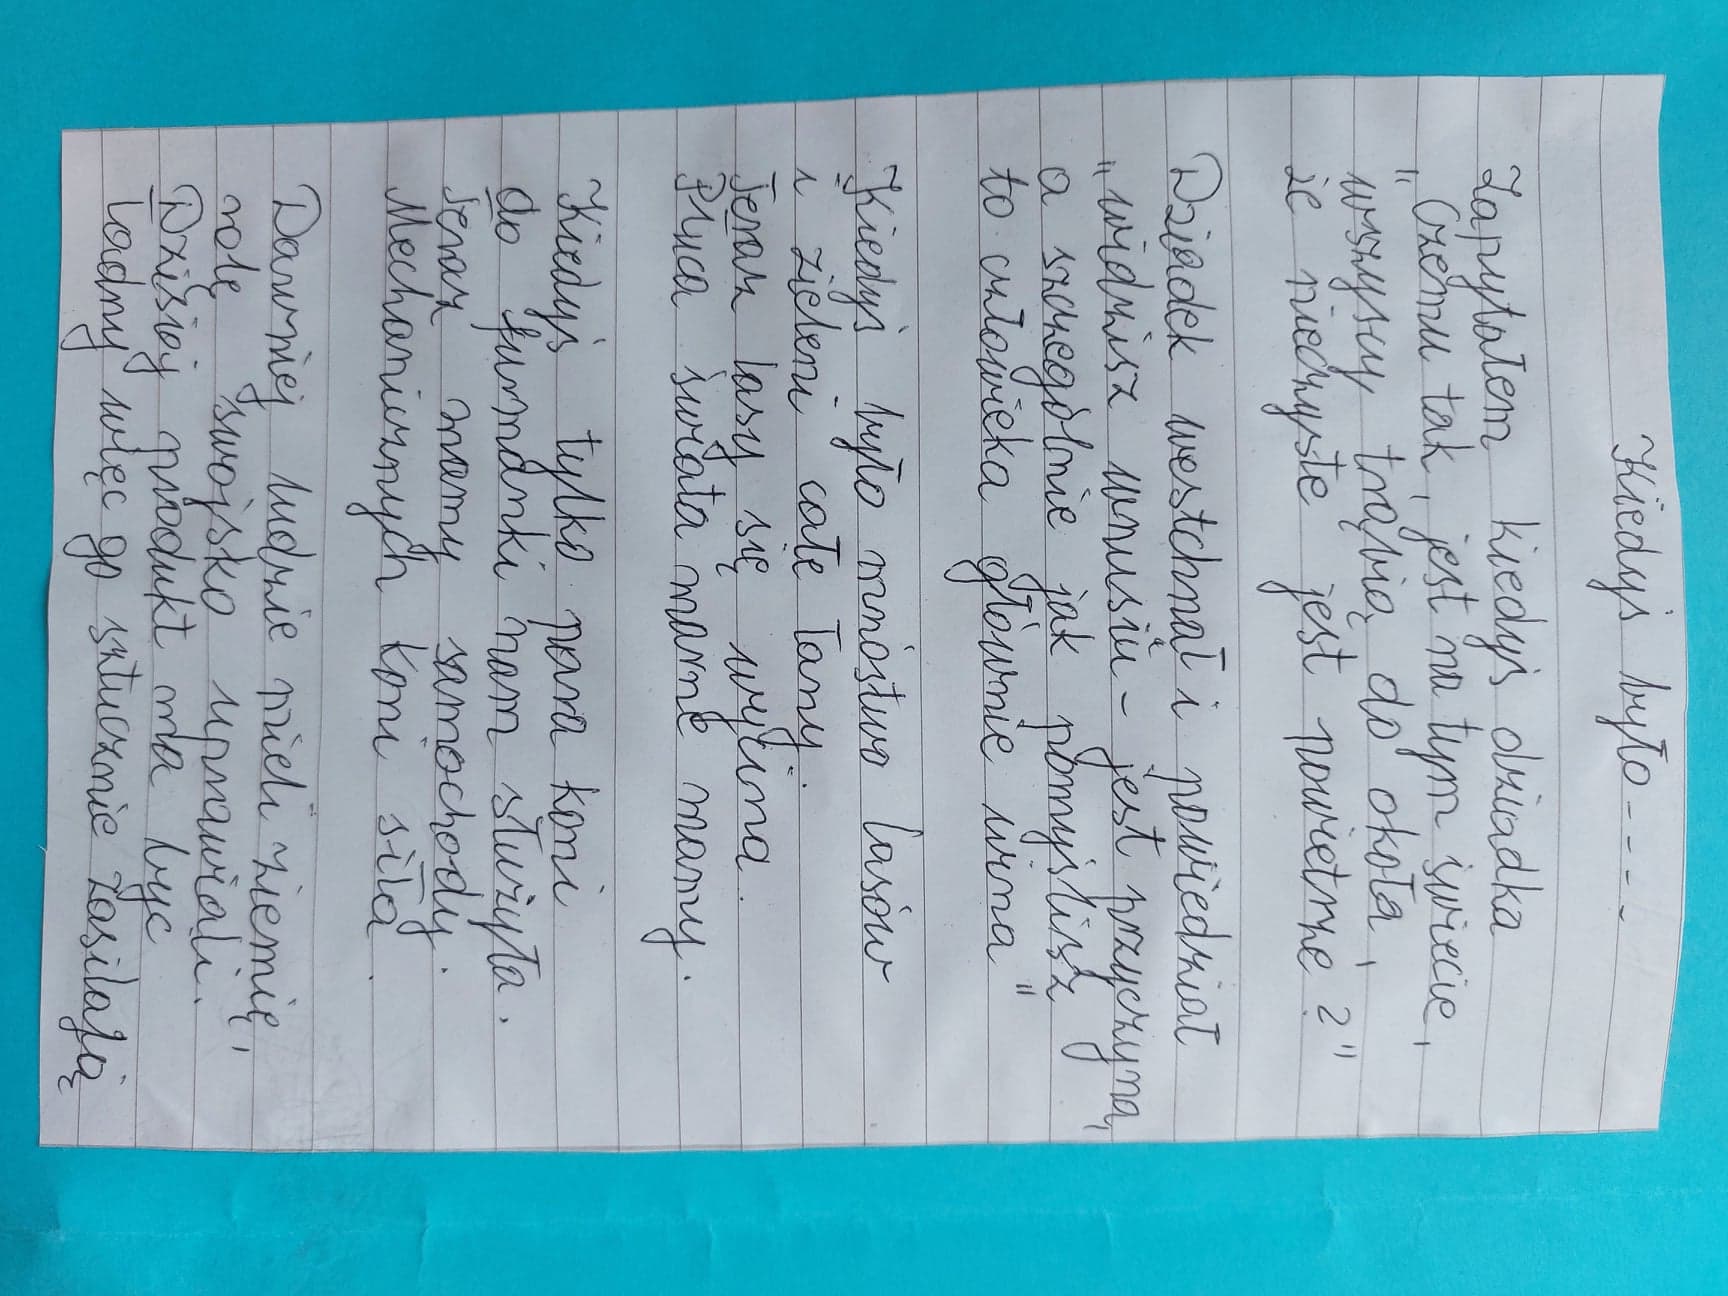 Kiedyś było----
Zapytałem kiedyś dziadka
"Czemu tak, jest na tym świecie,
wszyscy trąbią do okoła,
że nieczyste jest powietrze?"
Dziadek westchnał i powiedział
"widzisz wnusiu - jest przyczyna,
a szczególnie jak pomyślisz
to człowieka głównie wina"
Kiedyś było mnóstwo lasów
i zieleni całe łany.
Teraz lasy się wycina.
Płuca świata marne mamy.
Kiedyś tylko para koni
do furmanki nam służyła.
Teraz mamy samochody.
Mechanicznych koni siła.
Dawniej ludzie mieli ziemię,
rolę swojsko uprawiali.
Dzisiaj produkt ma być
ładny więc go sztucznie zasilają